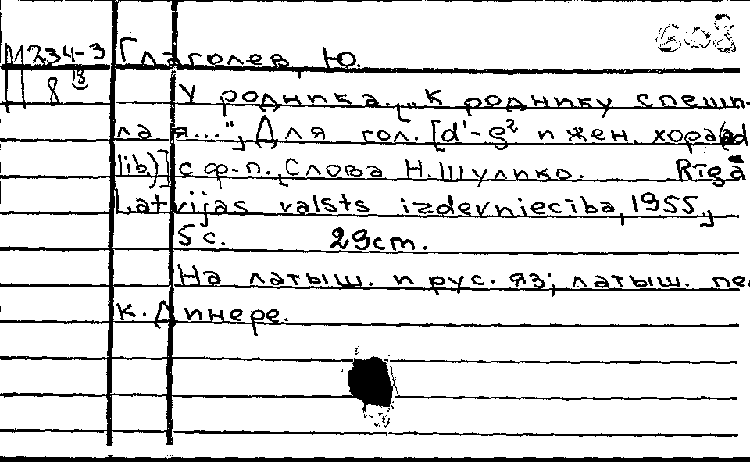 608
М 234-3 Глаголев, Ю.
8 18
У родника. „К роднику спеши-
ла я...", Для гол. [d'-g² и жен. хора (ad
lib.)] с ф-п., Слова Н. Шулико. Rīgā
Latvijas valsts izdevniecība, 1955.,
5 с. 29cm.
На латыш. и рус. яз; латыш. пе
К. Динере.